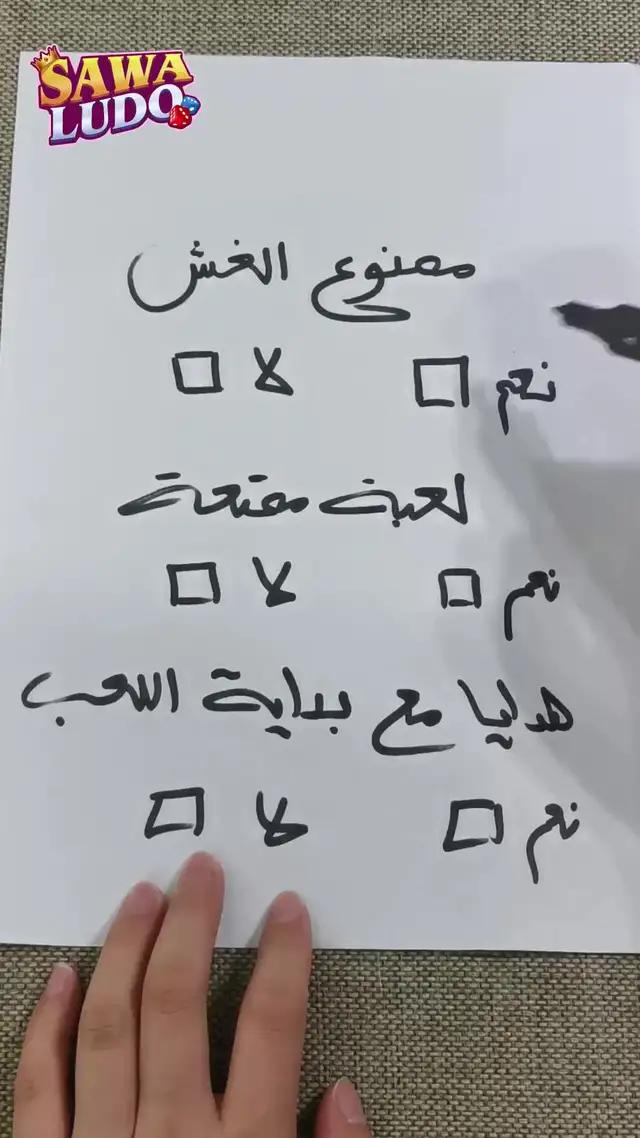 SAWA
LUDO
ممنوع الغش
نعم لا
لعبة ممتعة
نعم لا
هدايا مع بداية اللعب
نعم لا